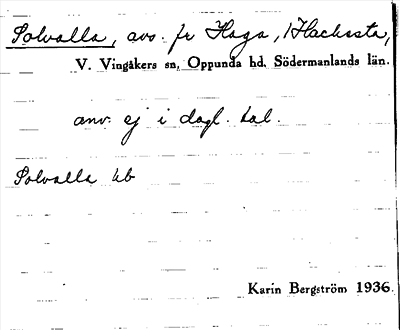 Solvalla, avs. fr Haga, 1 Hacksta,
V. Vingåkers sn, Oppunda hd, Södermanlands län.
anv. ej i dagl. tal.
Solvalla hb
Karin Bergström 1936